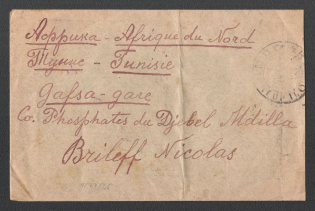 Африка - Afrique du Nord
Тунис - Tunisie
Gafsa-gare
Co. Phosphates du Djebel Mdilla
Brileff Nicolas